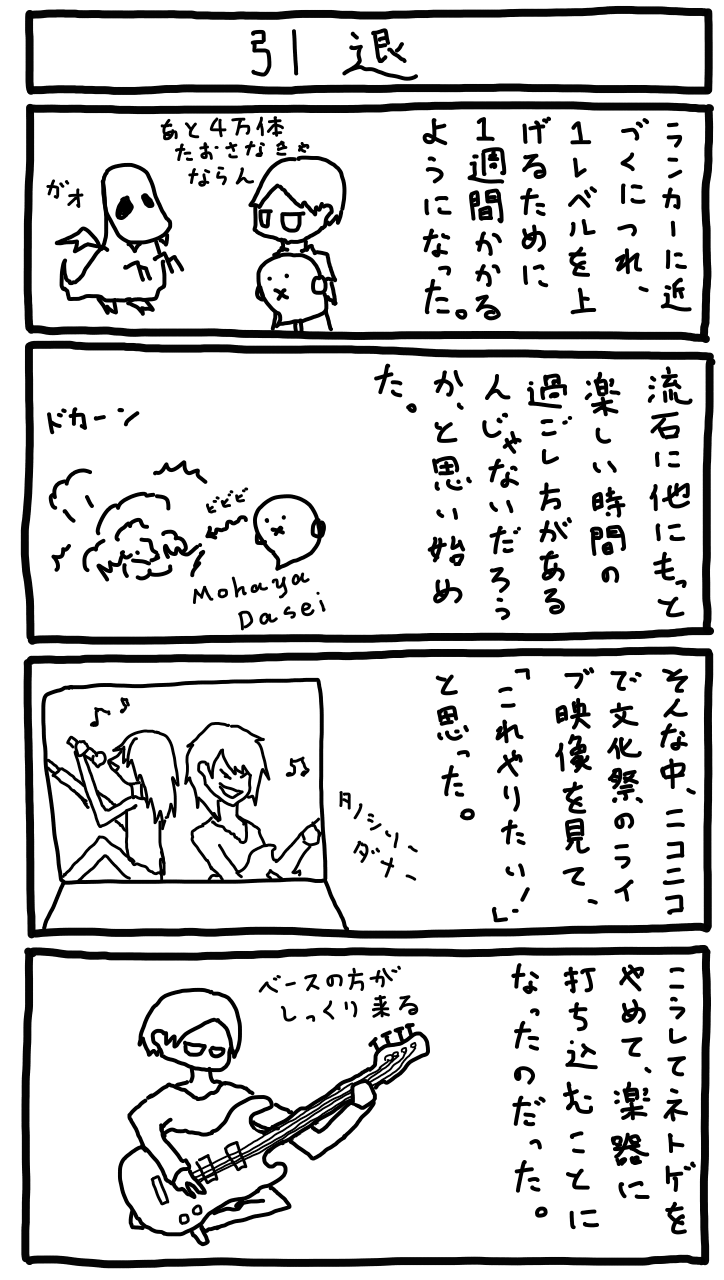 引退
ランカーに近
づくにつれ、
1レベルを上
げるために
1週間かかる
ようになった。
あと4万体
たおさなきゃ
ならん
ガオ
流石に他にもっと
楽しい時間の
過ごし方がある
んじゃないだろう
か、と思い始め
た。
ドカーン
ビビビ
Mohaya
Dasei
そんな中、ニコニコ
で文化祭のライ
ブ映像を見て、
「これやりたい!」
と思った。
タノシソー
ダナー
こうしてネトゲを
やめて、楽器に
打ち込むことに
なったのだった。
ベースの方が
しっくり来る